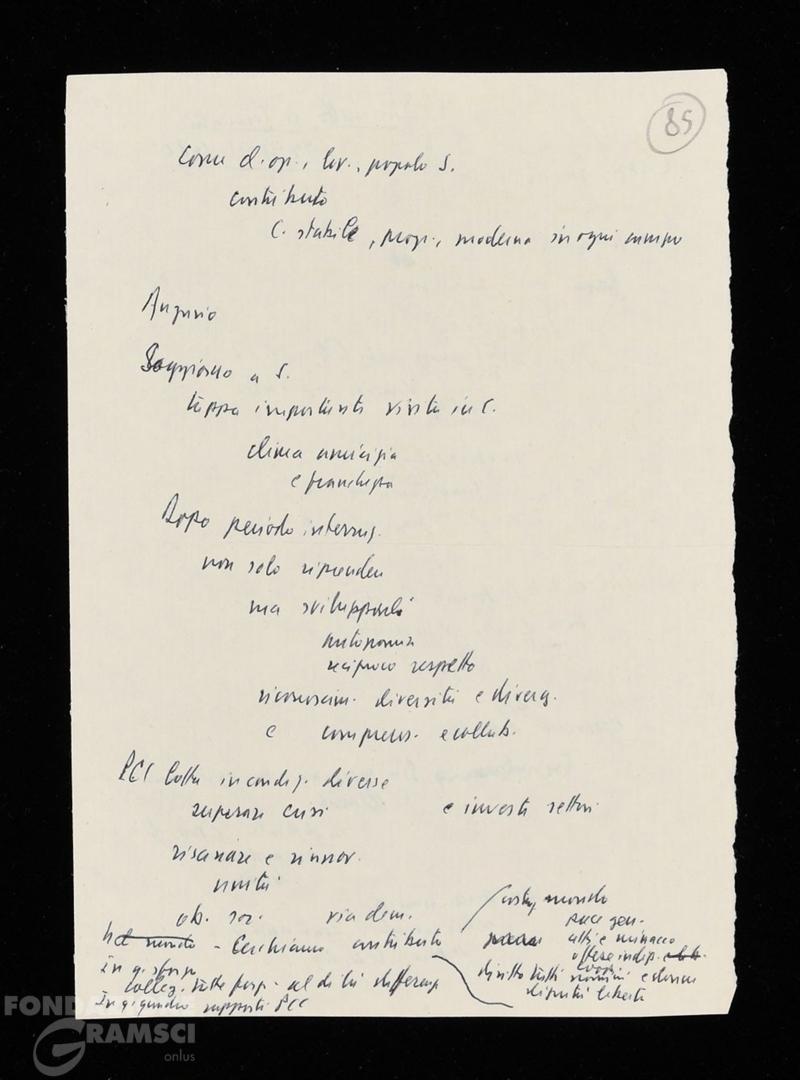 85
Come d. op., lav., popolo S.
contributo
C. stabile, progr., moderna in ogni campo
Augurio
Soggiorno a S.
tappa importante visita in C.
clima amicizia
e franchezza
Dopo periodo interruz.
non solo riprendere
ma svilupparli
autonomia
reciproco rispetto
riconoscim. diversità e diverg.
e comprens. e collab.
PCI lotta in condiz. diverse
superare crisi e investe settori
risanare e rinnov.
unità
ob. soc. via dem.
Nel mondo - Cerchiamo contributo
In q. sforzo
collez. tutte forze al di là differenze
In q. quadro rapporti PCC
mondo
pace gen.
atti e minacce
offese indip.
diritto tutti uomini e donne
dignità libertà
FONDAZIONE
GRAMSCI
onlus